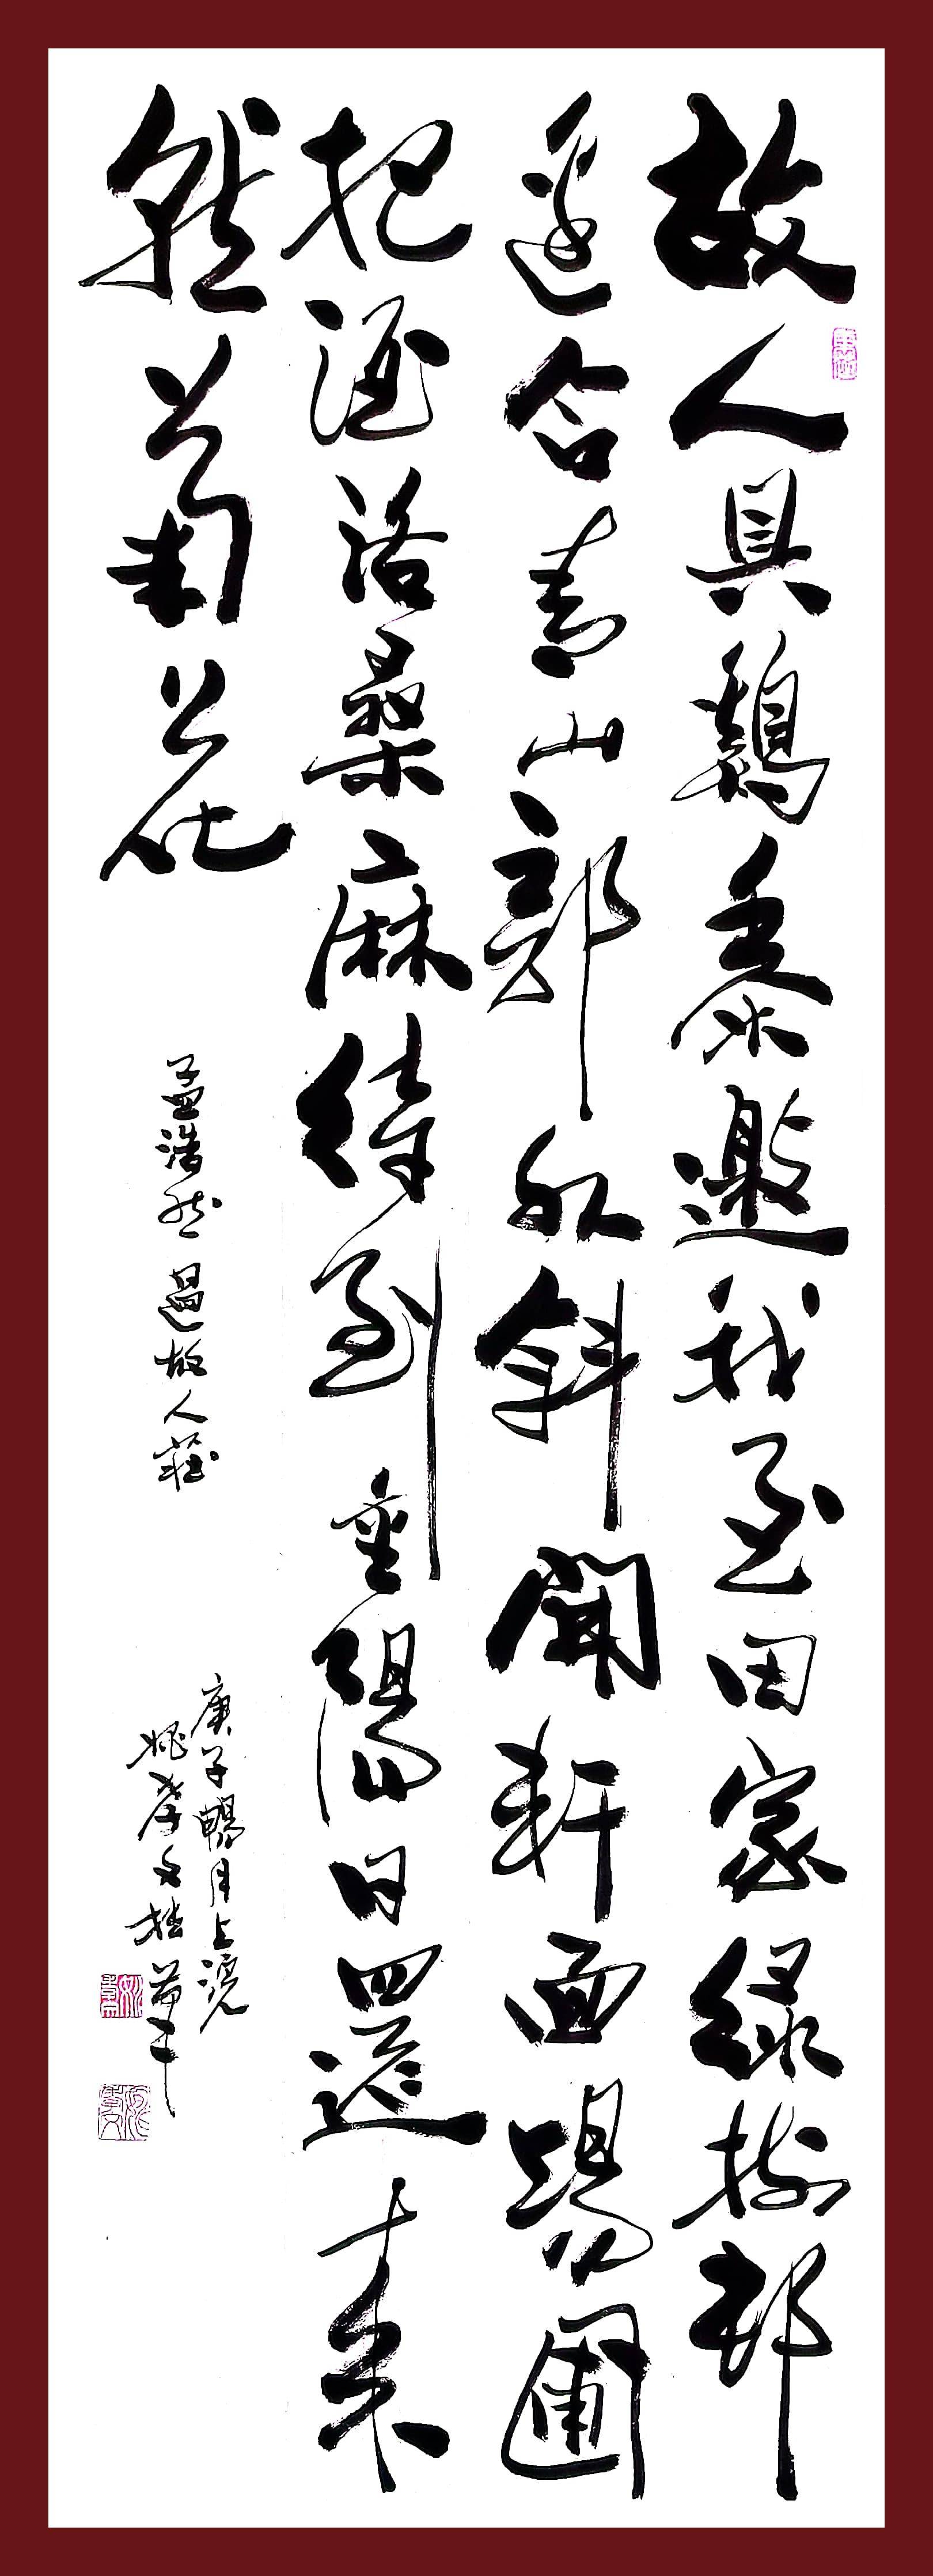 故人具鷄黍邀我至田家緑樹村
邊合青山郭外斜開軒面場圃
把酒話桑麻待到重陽日還来
就菊花
孟浩然過故人莊
庚子暢月上浣
姚孝文拙筆